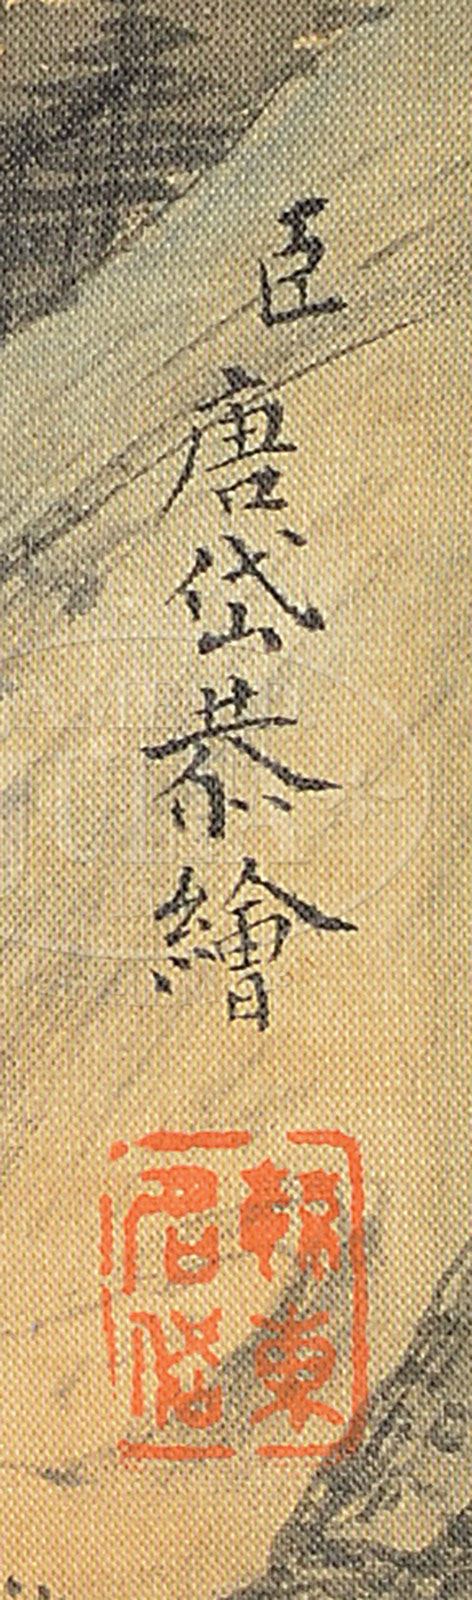 臣唐岱恭繪
毓東